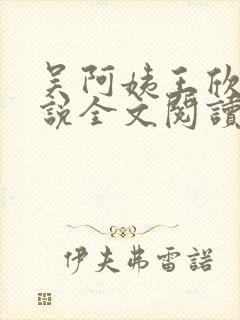 吴阿姨王欣
說全文閱讀
伊夫弗雷諾